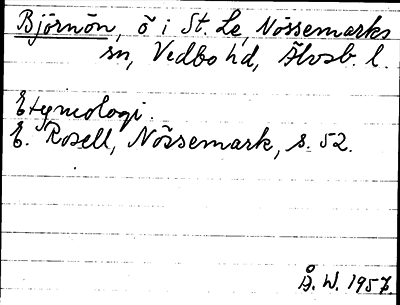 Björnön, ö i St. Le, Nössemarks
sn, Vedbo hd, Älvsb. l.
Etymologi.
E. Rosell, Nössemark, s. 52.
Å. W. 1957.